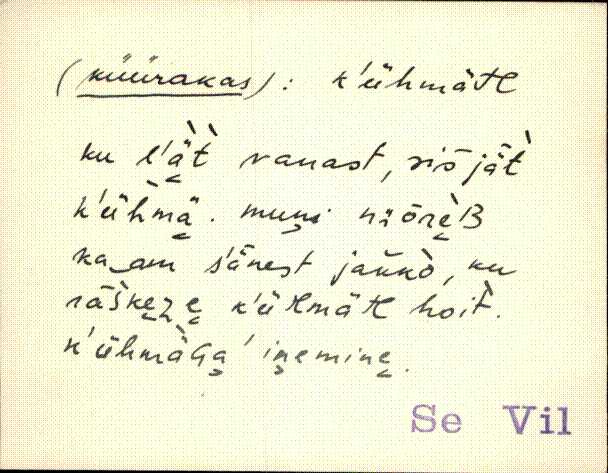 (küürakas): k'ühmätl
ku l'ä̀t̀ vanast, sis jät̀
k'ühmä̀. muni nïöre̬B
ka‿am s'änest jaùkò, ku
räške̬ze̬ k'ühmätl hoit̀.
k'ühmäGa' inemine̬.
Se Vil